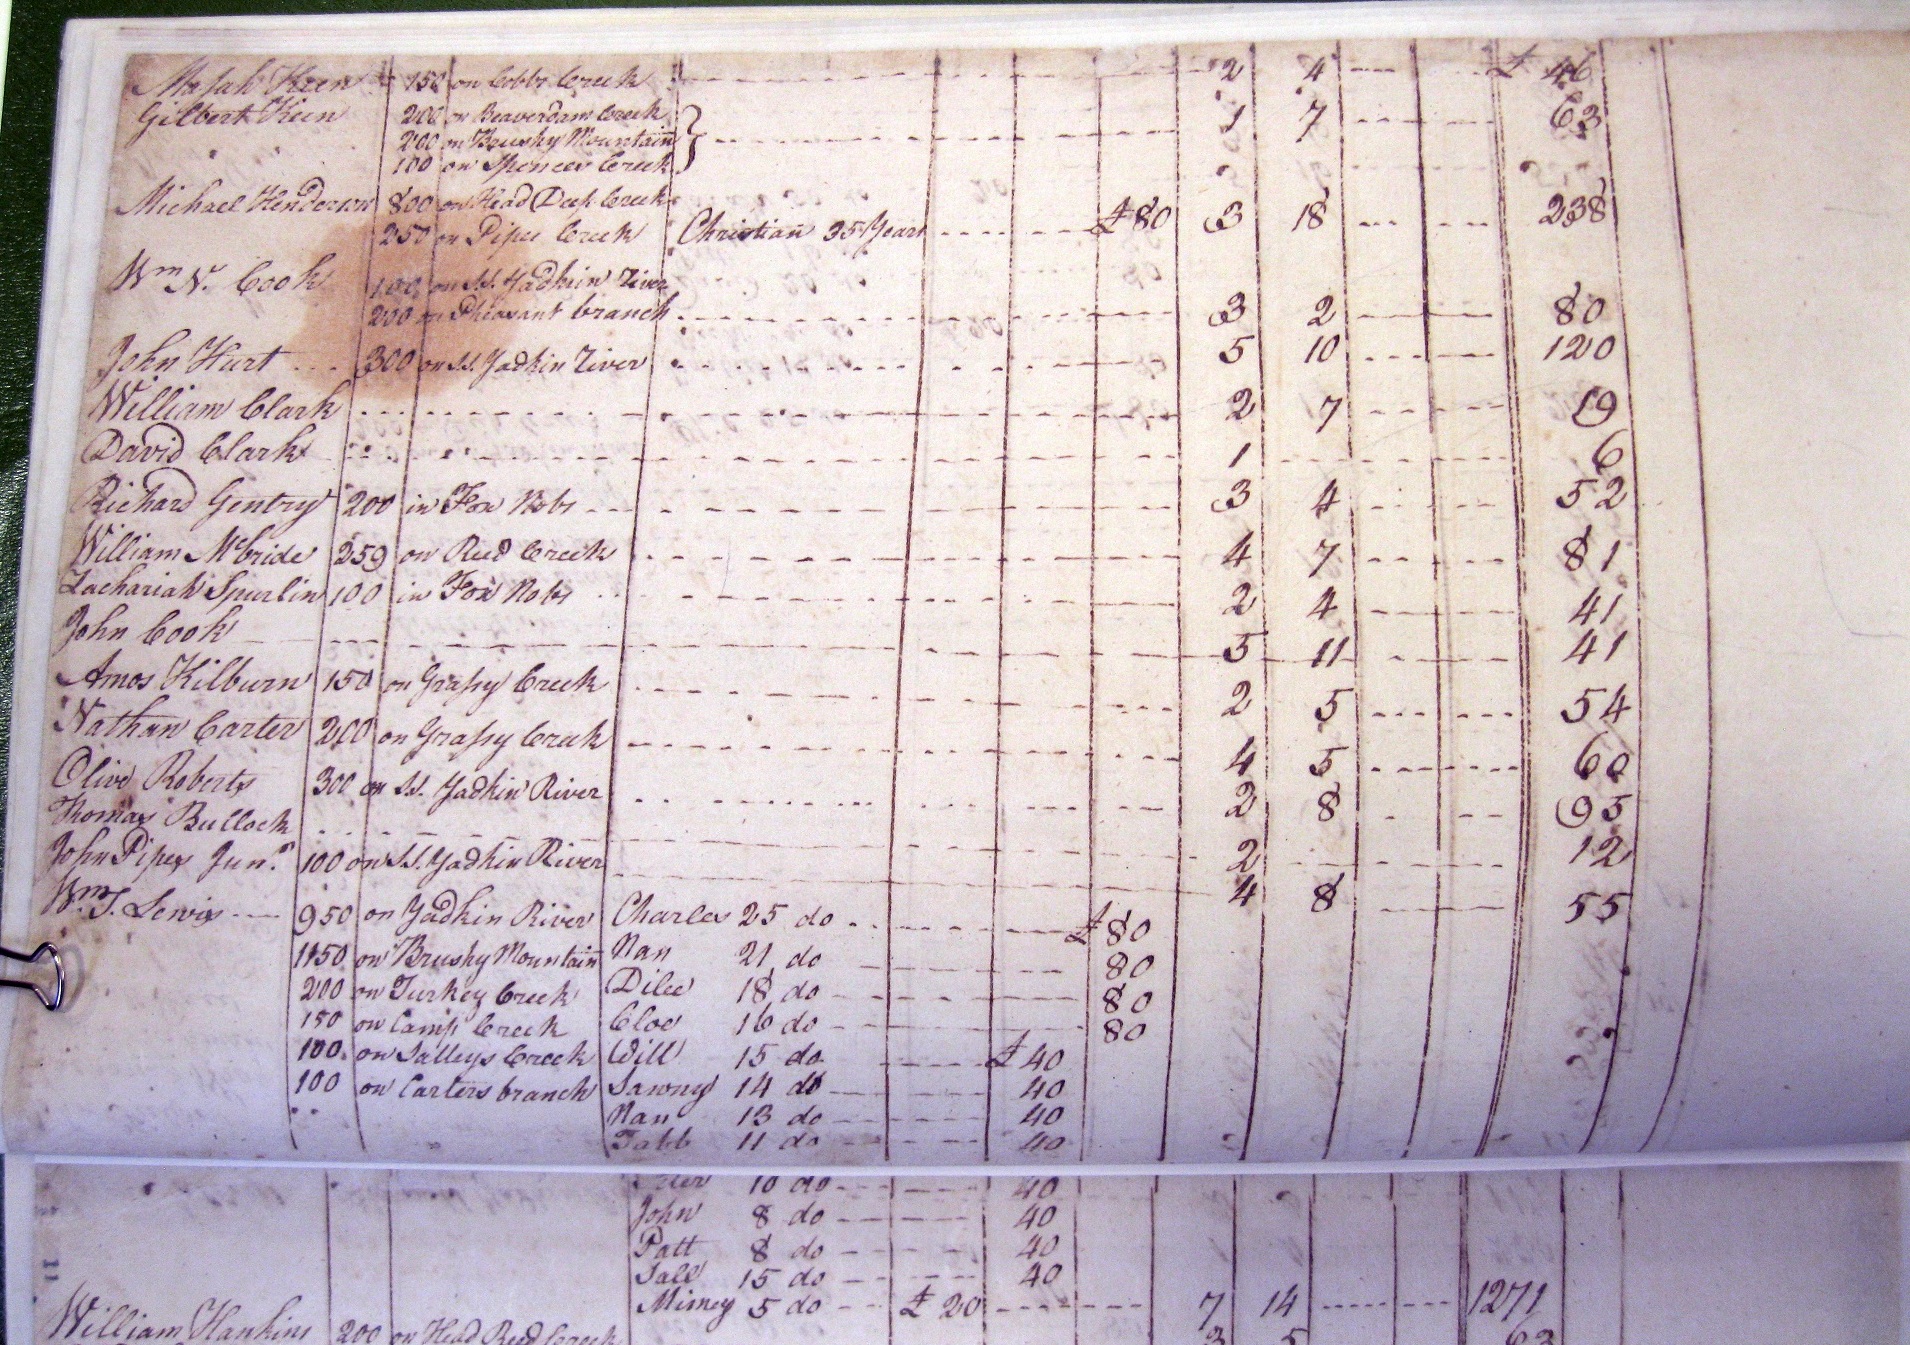 Keen 150 on Cobbs Creek 2 4 £ 46
Gilbert Keen 200 on Beaverdam Creek 1 7 63
200 on Brushy Mountain
100 on Spencer Creek
Michael Henderson 800 on Head Deep Creek
250 on Pipes Creek Christian 35 Years £80 3 18 238
Wm N. Cook 100 on S.S. Yadkin River
200 on Pheasant branch 3 2 80
John Hurt 300 on S.S. Yadkin River 5 10 120
William Clark 2 7 19
David Clark 1 6
Richard Gentry 200 in Fox Nobs 3 4 52
William Mcbride 259 on Reed Creek 4 7 81
Zachariah Spurlin 100 in Fox Nobs 2 4 41
John Cook 5 11 41
Amos Kilburn 150 on Grassy Creek 2 5 54
Nathan Carter 200 on Grassy Creek 4 5 60
Olive Roberts 300 on S.S. Yadkin River 2 8 95
Thomas Bullock 2 12
John Pipes Junr. 100 on S.S. Yadkin River 4 8 55
Wm T. Lewis 950 on Yadkin River Charles 25 do £80
1150 on Brushy Mountain Nan 21 do 80
200 on Turkey Creek Dilce 18 do 80
150 on Camp Creek Cloe 16 do 80
100 on Salleys Creek Will 15 do £40
100 on Carters branch Sawny 14 do 40
Nan 13 do 40
Tabb 11 do 40
10 do 40
John 8 do 40
Patt 8 do 40
Sall 15 do 40
Mimey 5 do £20 7 14 1271
William Hankins 200 on Head Reed Creek 3 5 63